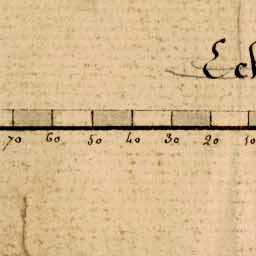 Ech
70 60 50 40 30 20 10